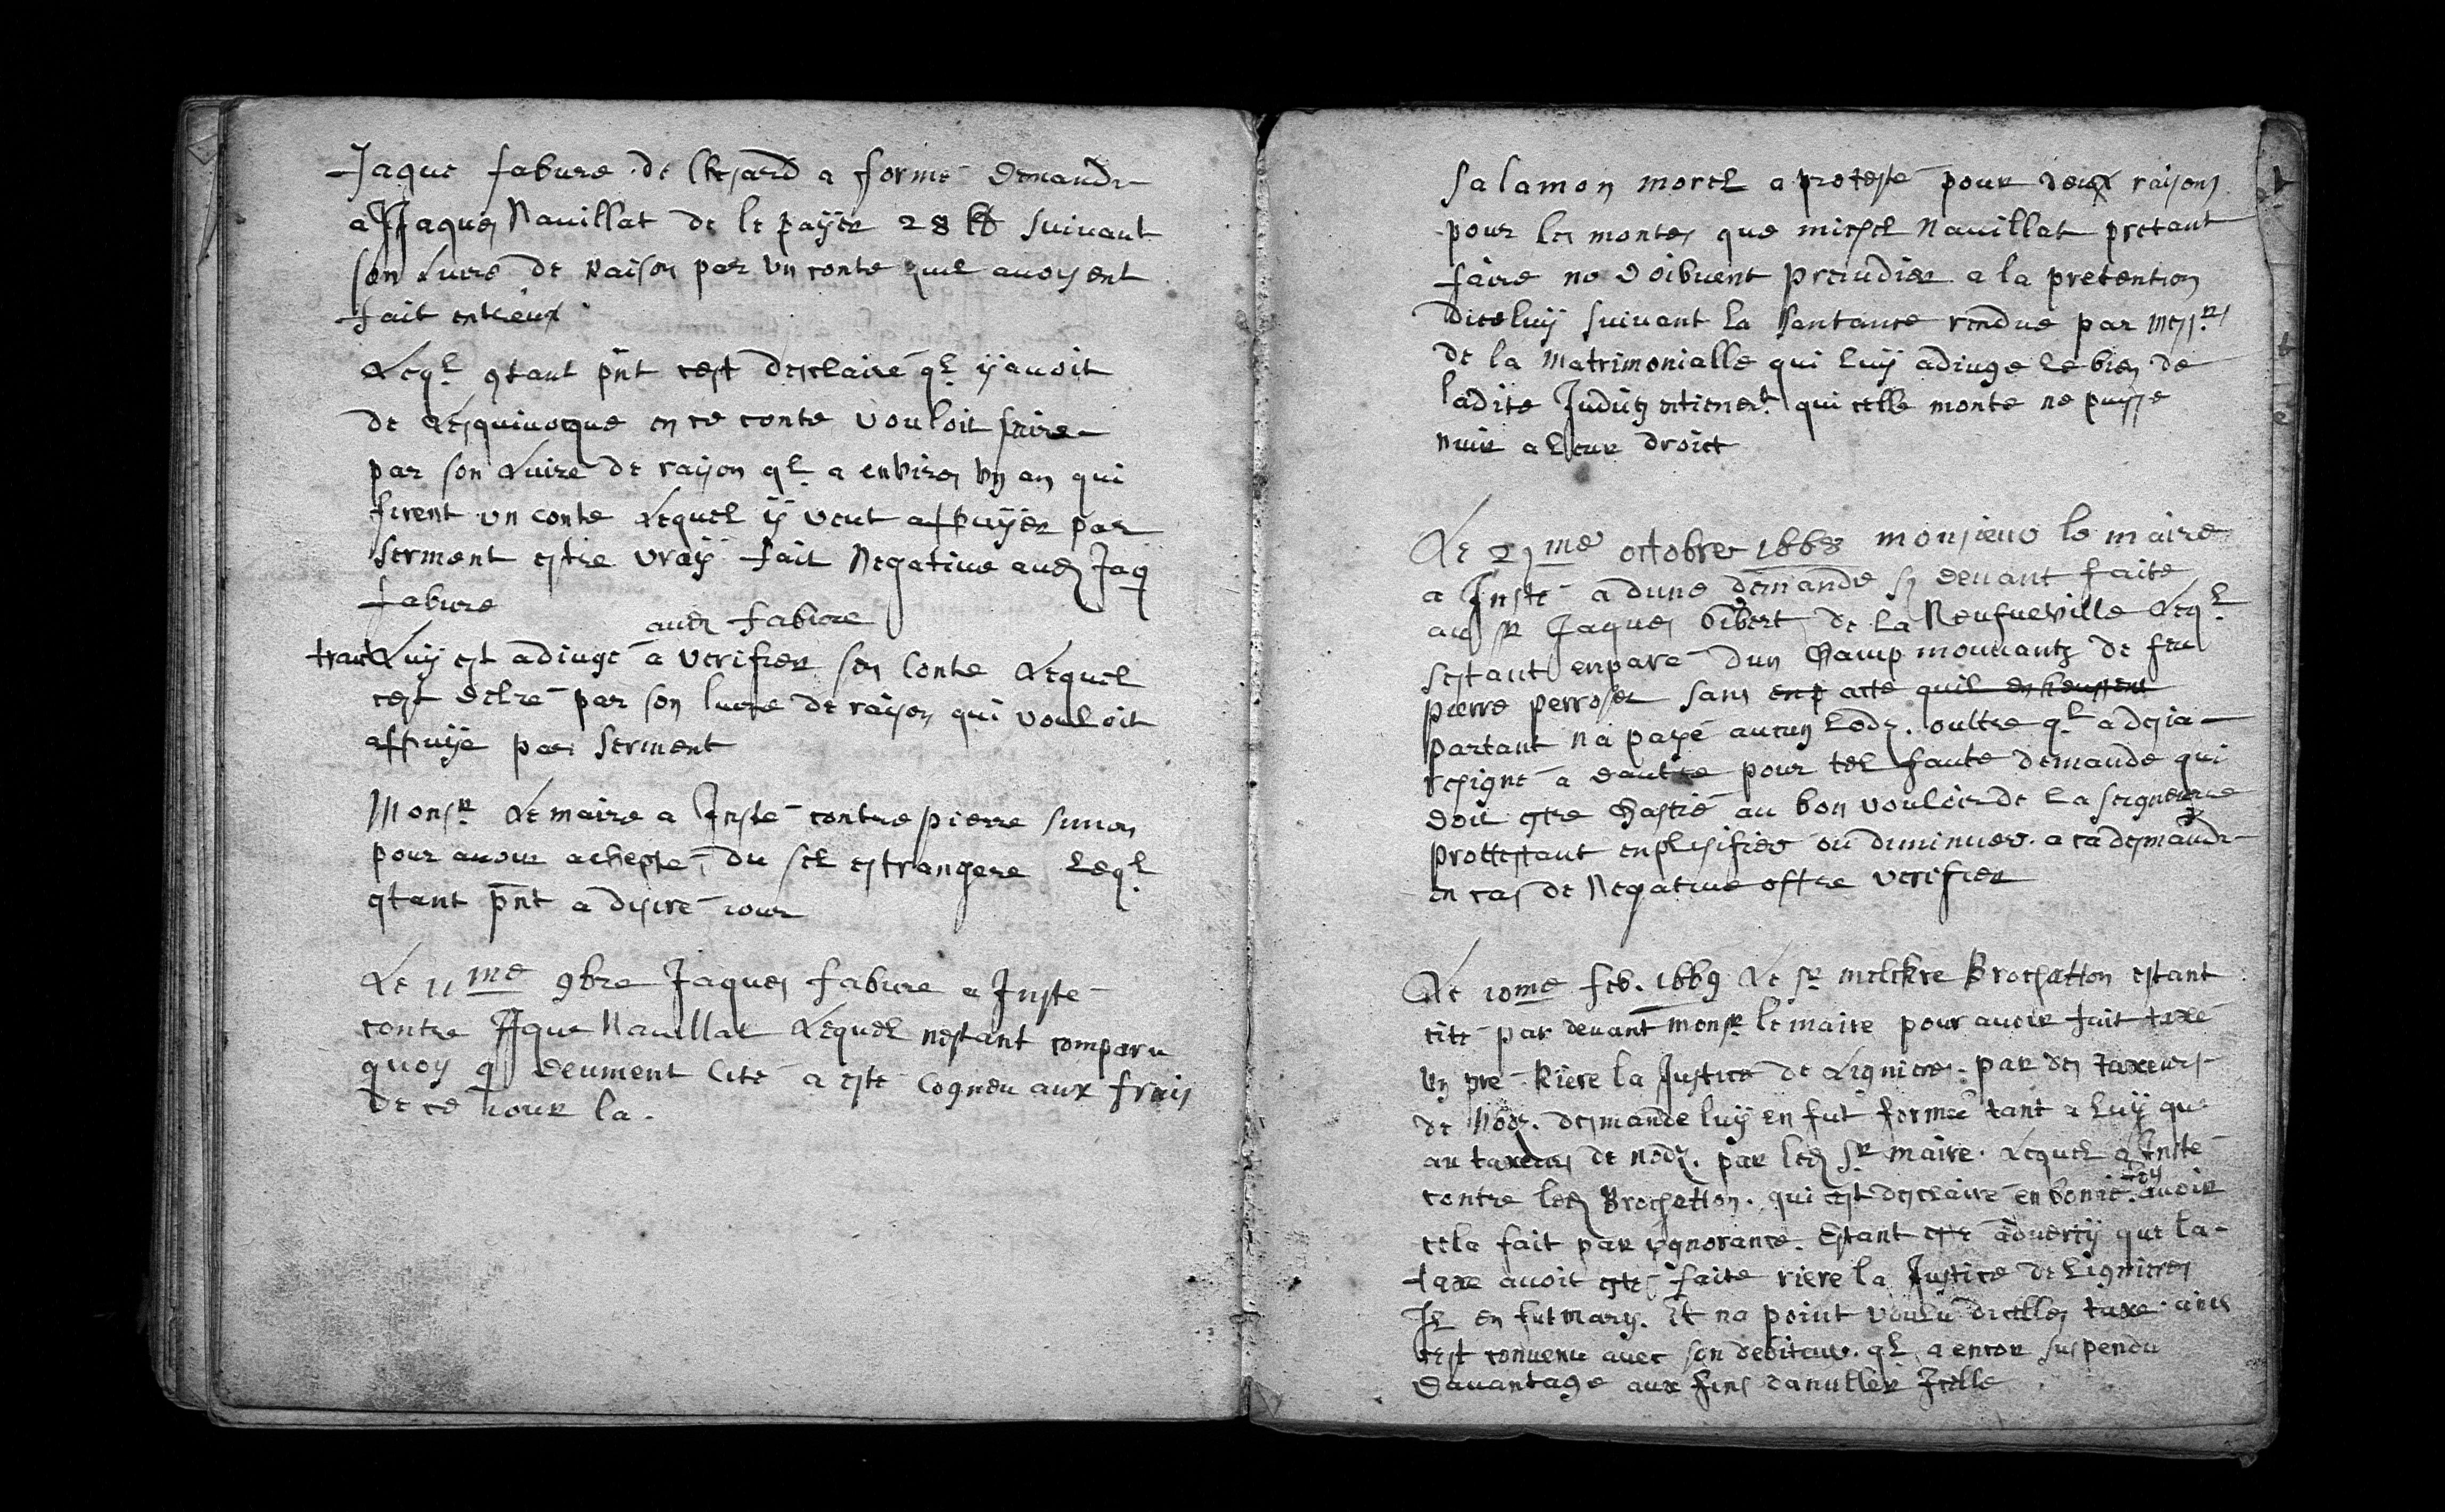 Jaque fabure de Chesard a formé demande
a Jaques Nauillat de le payer 28 lb suiuant
son Liure de Raison par vn conte quil auoyent
fait entreux
Leql. estant pnt cest desclairé ql. ij auoit
de Lesquiuocque en ce conte vouloit faire
par son Liure de raison ql. a enviro vn an qui
firent vn conte Lequel ij veut appuijer par
serment estre vraij fait Negatiue aud Jaq
fabure
aud fabure
trans Luij est adiugé a verifier son Conte Lequel
cest par son liure de raison qui vouloit
appuije par serment
Monsr. Le maire a Insté contre pierre simon
pour auoir achepté du sel estrangere Leql.
estant pnt a desiré iour
Le 11me 9bre Jaques fabure a Insté
contre Jaque Nauillat Lequel nestant comparu
quoy q deument Cité a esté Cogneu aux frais
de ce iour la.
Salamon morel a protesté pour deux raisons
pour les montes que michel Nauillat pretant
faire ne doibuent preiudier a la pretention
diceluij suiuant la santance rendue par messrs
de la Matrimonialle qui luij adiuge Le bien de
ladite Judith qui celle monte ne puisse
nuir a Leur droict
Le 29me octobre 1668 monsieur le maire
a Insté a dune demande sy deuant faite
au sr Jaques Gibert de La Neufueville Leql.
sestant enparé dun Champ mouuants de feu
pierre perroset sans enp acte quil en heussent
partant na payé aucun Lods. oultre ql. a desia
resigné a dautre pour tel faute demande qui
doit estre Chastié au bon vouloir de La seigneurie
prottestant enplisifier ou diminuer. a ca desmande
en cas de Negatiue offre verifier
Le 10me feb. 1669 Le sr. melchre Brochatton estant
cité par deuant monsr le maire pour auoir fait taxé
vn pré Riere la Justice de Lignieres. par des taxeurs
de Nods. desmande luij en fut formé tant a Luij que
au taxeurs de nods. par led Sr maire. Lequel a Insté
contre led Brochetton. qui cest desclairé en bonne foy auoir
cela fait par ygnorance. Estant esté aduertij que la
taxe auoit estes faite riere la Justice de Lignieres
Il en fut mary. Et na point voulu dicelles taxe. ains
cest conuenu auec son debiteur. ql. a encor suspendu
dauantage aux fins danuller Icelle